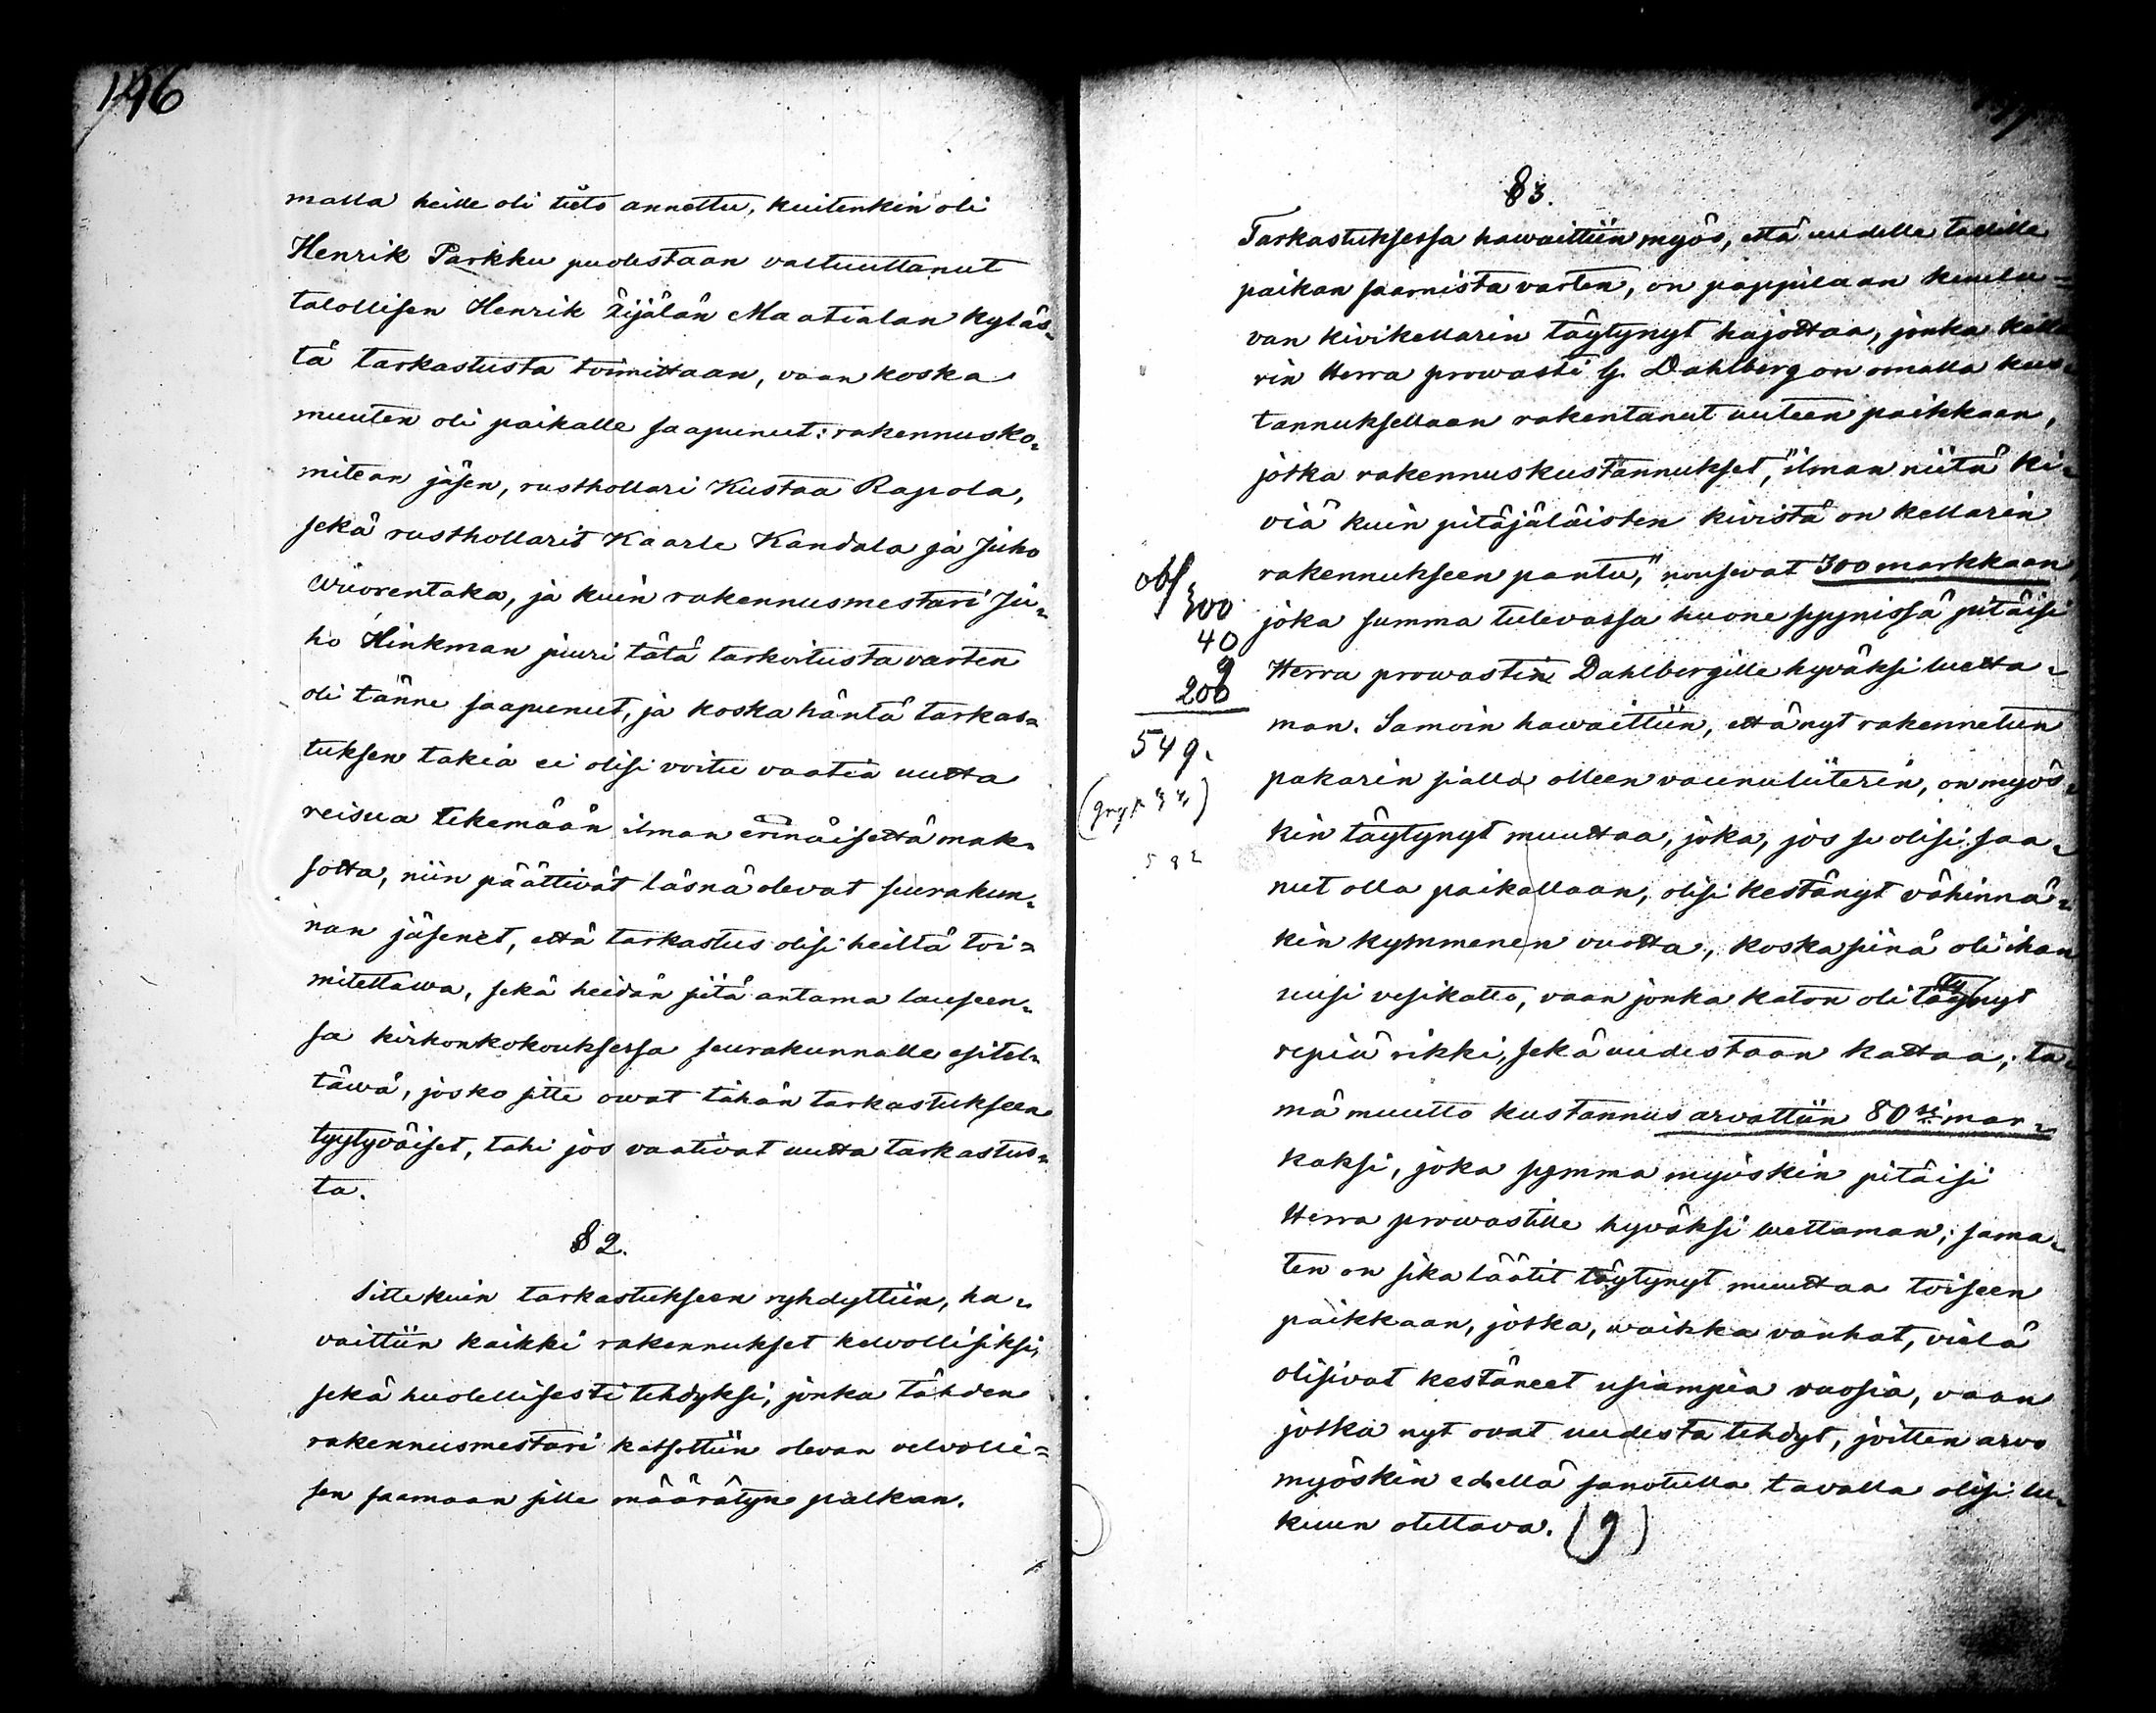 146
malla heille oli tieto annettu, kuitenkin oli
Henrik Parkku puolestaan valtuuttanut
talollisen Henrik Äijälän Maatialan kyläs-
tä tarkastusta toimittaan, vaan koska
muuten oli paikalle saapunut: rakennusko-
mitean jäsen, rusthollari Kustaa Rapola,
sekä rusthollarit Kaarle Kandola ja Juho
Wuorentaka, ja kuin rakennusmestari Ju-
ho Hinkman juuri tätä tarkoitusta varten
oli tänne saapunut, ja koska häntä tarkas-
tuksen takia ei olisi voitu vaatia uutta
reisua tekemään ilman erinäisettä mak-
sotta, niin päättivät läsnä olevat seurakun-
nan jäsenet, että tarkastus olisi heiltä toi-
mitettawa, sekä heidän siitä antama lauseen-
sa kirkonkokouksessa seurakunnalle esitel-
täwä, josko sitte owat tähän tarkastukseen
tyytyväiset, tahi jos vaativat uutta tarkastus-
ta.
§ 2.
Sitte kuin tarkastukseen ryhdyttiin, ha-
vaittiin kaikki rakennukset kelvollisiksi,
sekä huolellisesti tehdyksi, jonka tähden
rakennusmestari katsottiin olevan velvolli-
sen saamaan sille määrätyn palkan.
§ 3.
Tarkastuksessa hawaittiin myös, että uudelle tallille
paikan saamista varten, on pappilaan kuulu-
van kivikellarin täytynyt hajottaa, jonka kella
rin Herra prowasti G. Dahlberg on omalla kus-
tannuksellaan rakentanut uuteen paikkaan,
jotka rakennuskustannukset, "ilman niitä ki-
viä kuin pitäjäläisten kivistä on kellarin
rakennukseen pantu," nousevat 300 markkaan,
joka summa tulevassa huone syynissä pitäisi
Herra prowastin Dahlbergille hyväksi luetta-
man. Samoin hawaittiin, että nyt rakennetun
pakarin sialla olleen vaunuliiterin, on myös-
kin täytynyt muuttaa, joka, jos se olisi saa-
nut olla paikallaan, olisi kestänyt vähinnä-
kin kymmenen vuotta, koska siinä oli ihan
uusi vesikatto, vaan jonka katon oli täytynyt
repiä rikki, sekä uudestaan kattaa, tä-
mä muutto kustannus arvattiin 80si mar-
kaksi, joka symma myöskin pitäisi
Herra prowastille hyväksi luettaman; sama-
ten on sika läätit täytynyt muuttaa toiseen
paikkaan, jotka, waikka vanhat, vielä
olisivat kestäneet usiampia vuosia, vaan
jotka nyt ovat uudesta tehdyt, joitten arvo
myöskin edellä sanotulla tavalla olisi lu-
kuun otettava. (9)
obs
300
40
549.